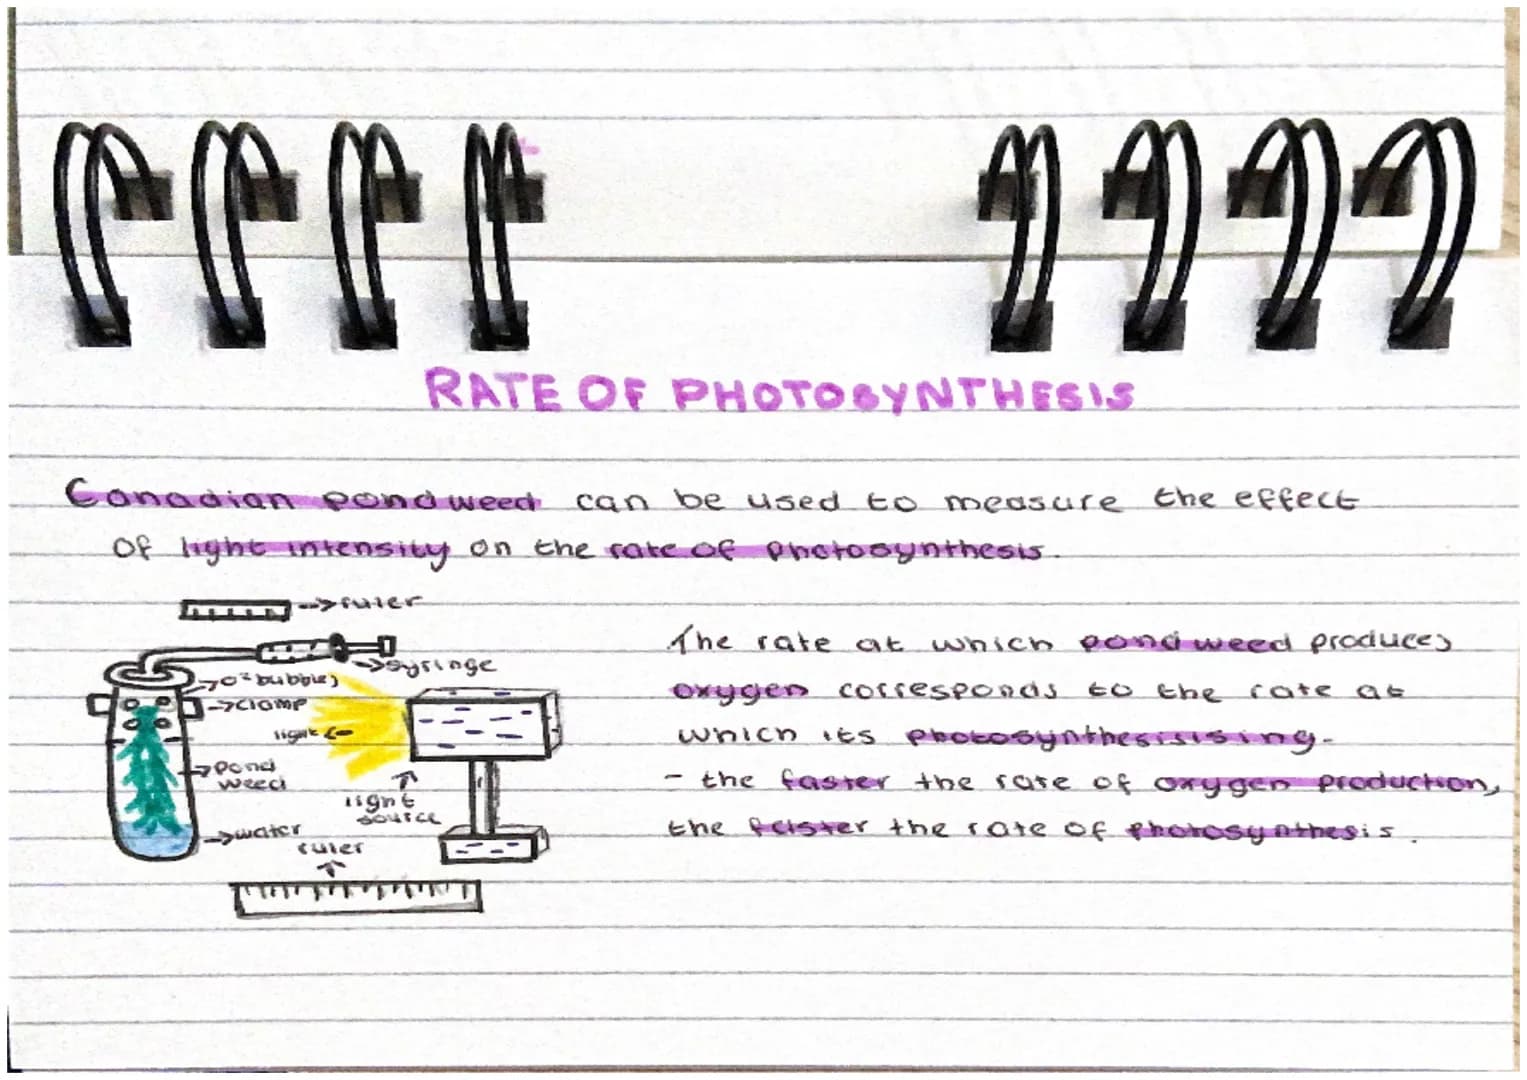 RATE OF PHOTOSYNTHESIS
Canadian pondweed can be used to measure the effect
of light intensity on the rate of photosynthesis.
→ruler
→syringe
→O² bubbles
→clamp
light←
→pond
weed
light
source
→water
ruler
The rate at which pondweed produces
oxygen corresponds to the rate at
which its photosynthesisising.
- the faster the rate of oxygen production,
the faster the rate of photosynthesis.